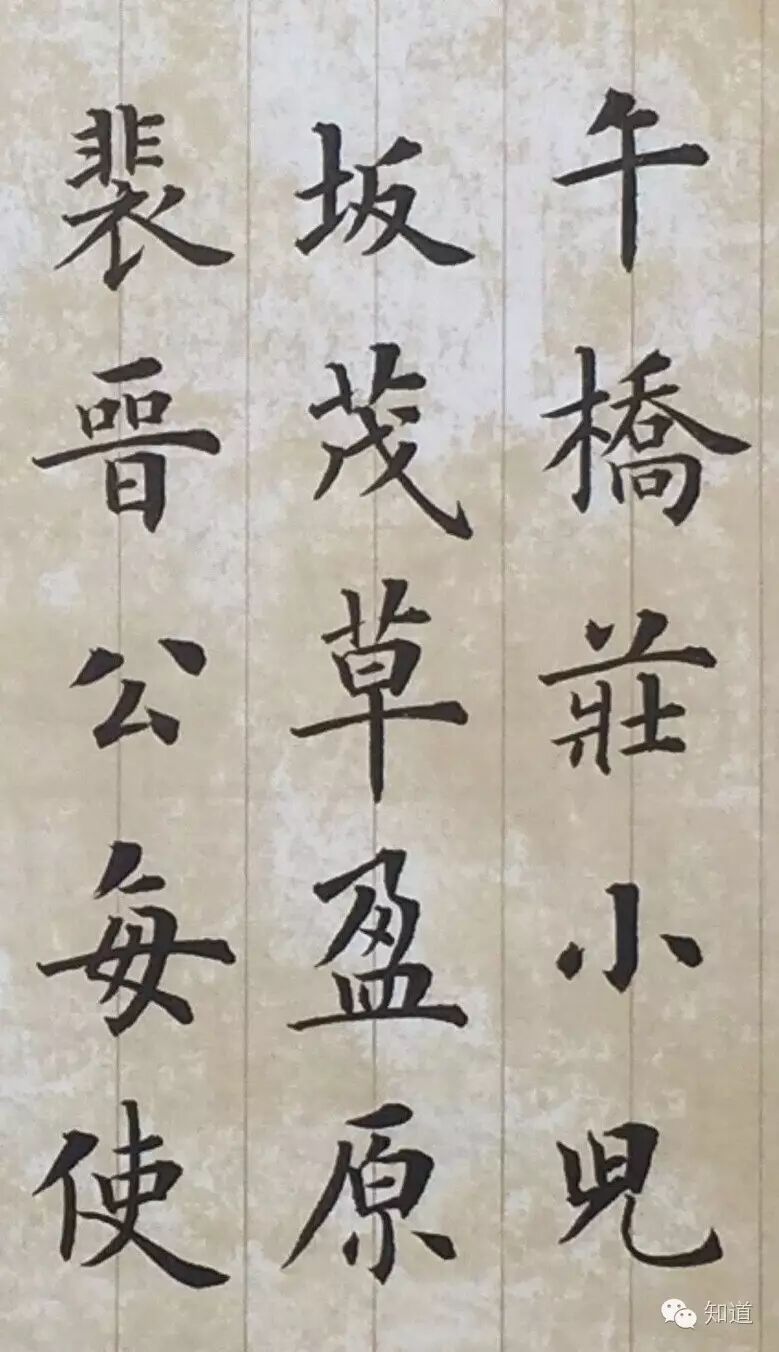 午橋莊小兒
坂茂草盈原
裴晉公每使
知道